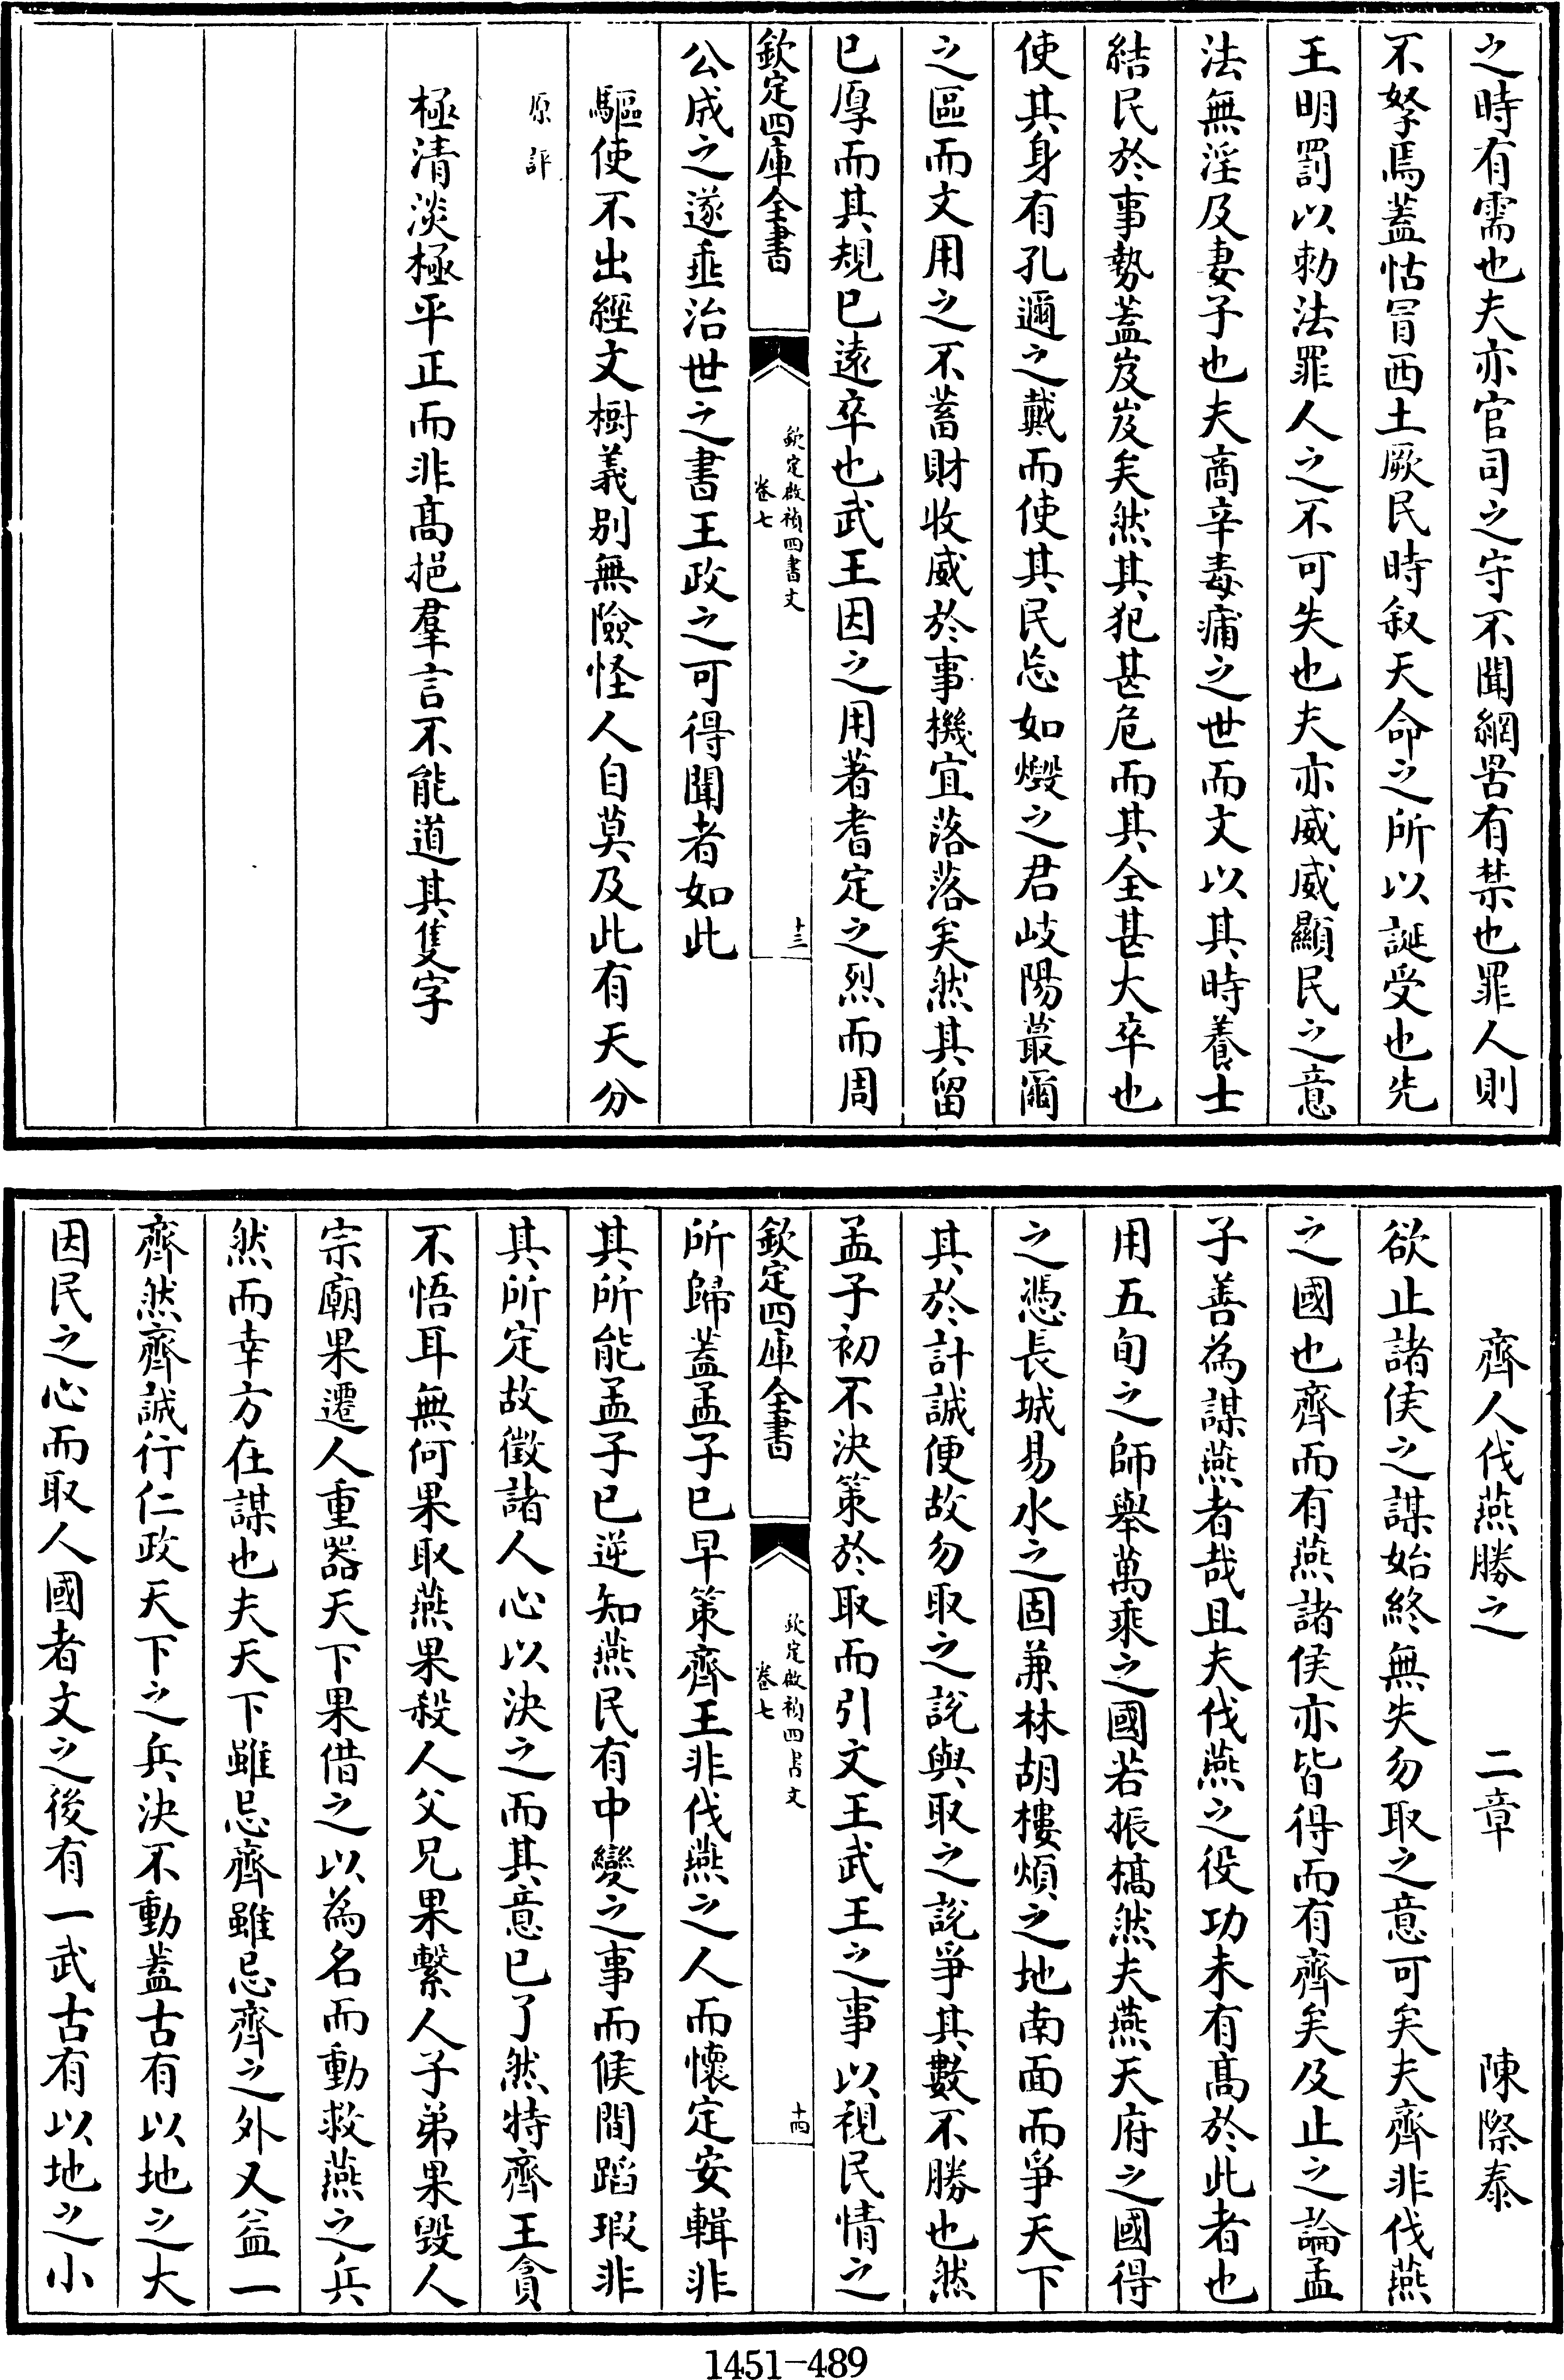 之時有需也夫亦官司之守不聞網罟有禁也罪人則
不孥焉蓋怙冒西土厥民時叙天命之所以誕受也先
王明罰以勅法罪人之不可失也夫亦威威顯民之意
法無淫及妻子也夫商辛毒痡之世而文以其時養士
結民於事勢蓋岌岌矣然其犯甚危而其全甚大卒也
使其身有孔邇之戴而使其民忘如燬之君岐陽蕞爾
之區而文用之不蓄財收威於事機宜落落矣然其留
已厚而其規已遠卒也武王因之用著耆定之烈而周
欽定四庫全書
欽定啟禎四書文
卷七
十三
公成之遂垂治世之書王政之可得聞者如此
驅使不出經文樹義别無險怪人自莫及此有天分
原評
極清淡極平正而非髙挹羣言不能道其隻字
齊人伐燕勝之 二章 陳際泰
欲止諸侯之謀始終無失勿取之意可矣夫齊非伐燕
之國也齊而有燕諸侯亦皆得而有齊矣及止之論孟
子善為謀燕者哉且夫伐燕之役功未有髙於此者也
用五旬之師舉萬乘之國若振槁然夫燕天府之國得
之憑長城易水之固兼林胡樓煩之地南面而爭天下
其於計誠便故勿取之說與取之說爭其數不勝也然
孟子初不決策於取而引文王武王之事以視民情之
欽定四庫全書
欽定啟禎四書文
卷七
十四
所歸蓋孟子已早策齊王非伐燕之人而懷定安輯非
其所能孟子已逆知燕民有中變之事而候間蹈瑕非
其所定故徵諸人心以決之而其意已了然特齊王貪
不悟耳無何果取燕果殺人父兄果繫人子弟果毀人
宗廟果遷人重器天下果借之以為名而動救燕之兵
然而幸方在謀也夫天下雖忌齊雖忌齊之外又益一
齊然齊誠行仁政天下之兵決不動蓋古有以地之大
因民之心而取人國者文之後有一武古有以地之小
1451-489